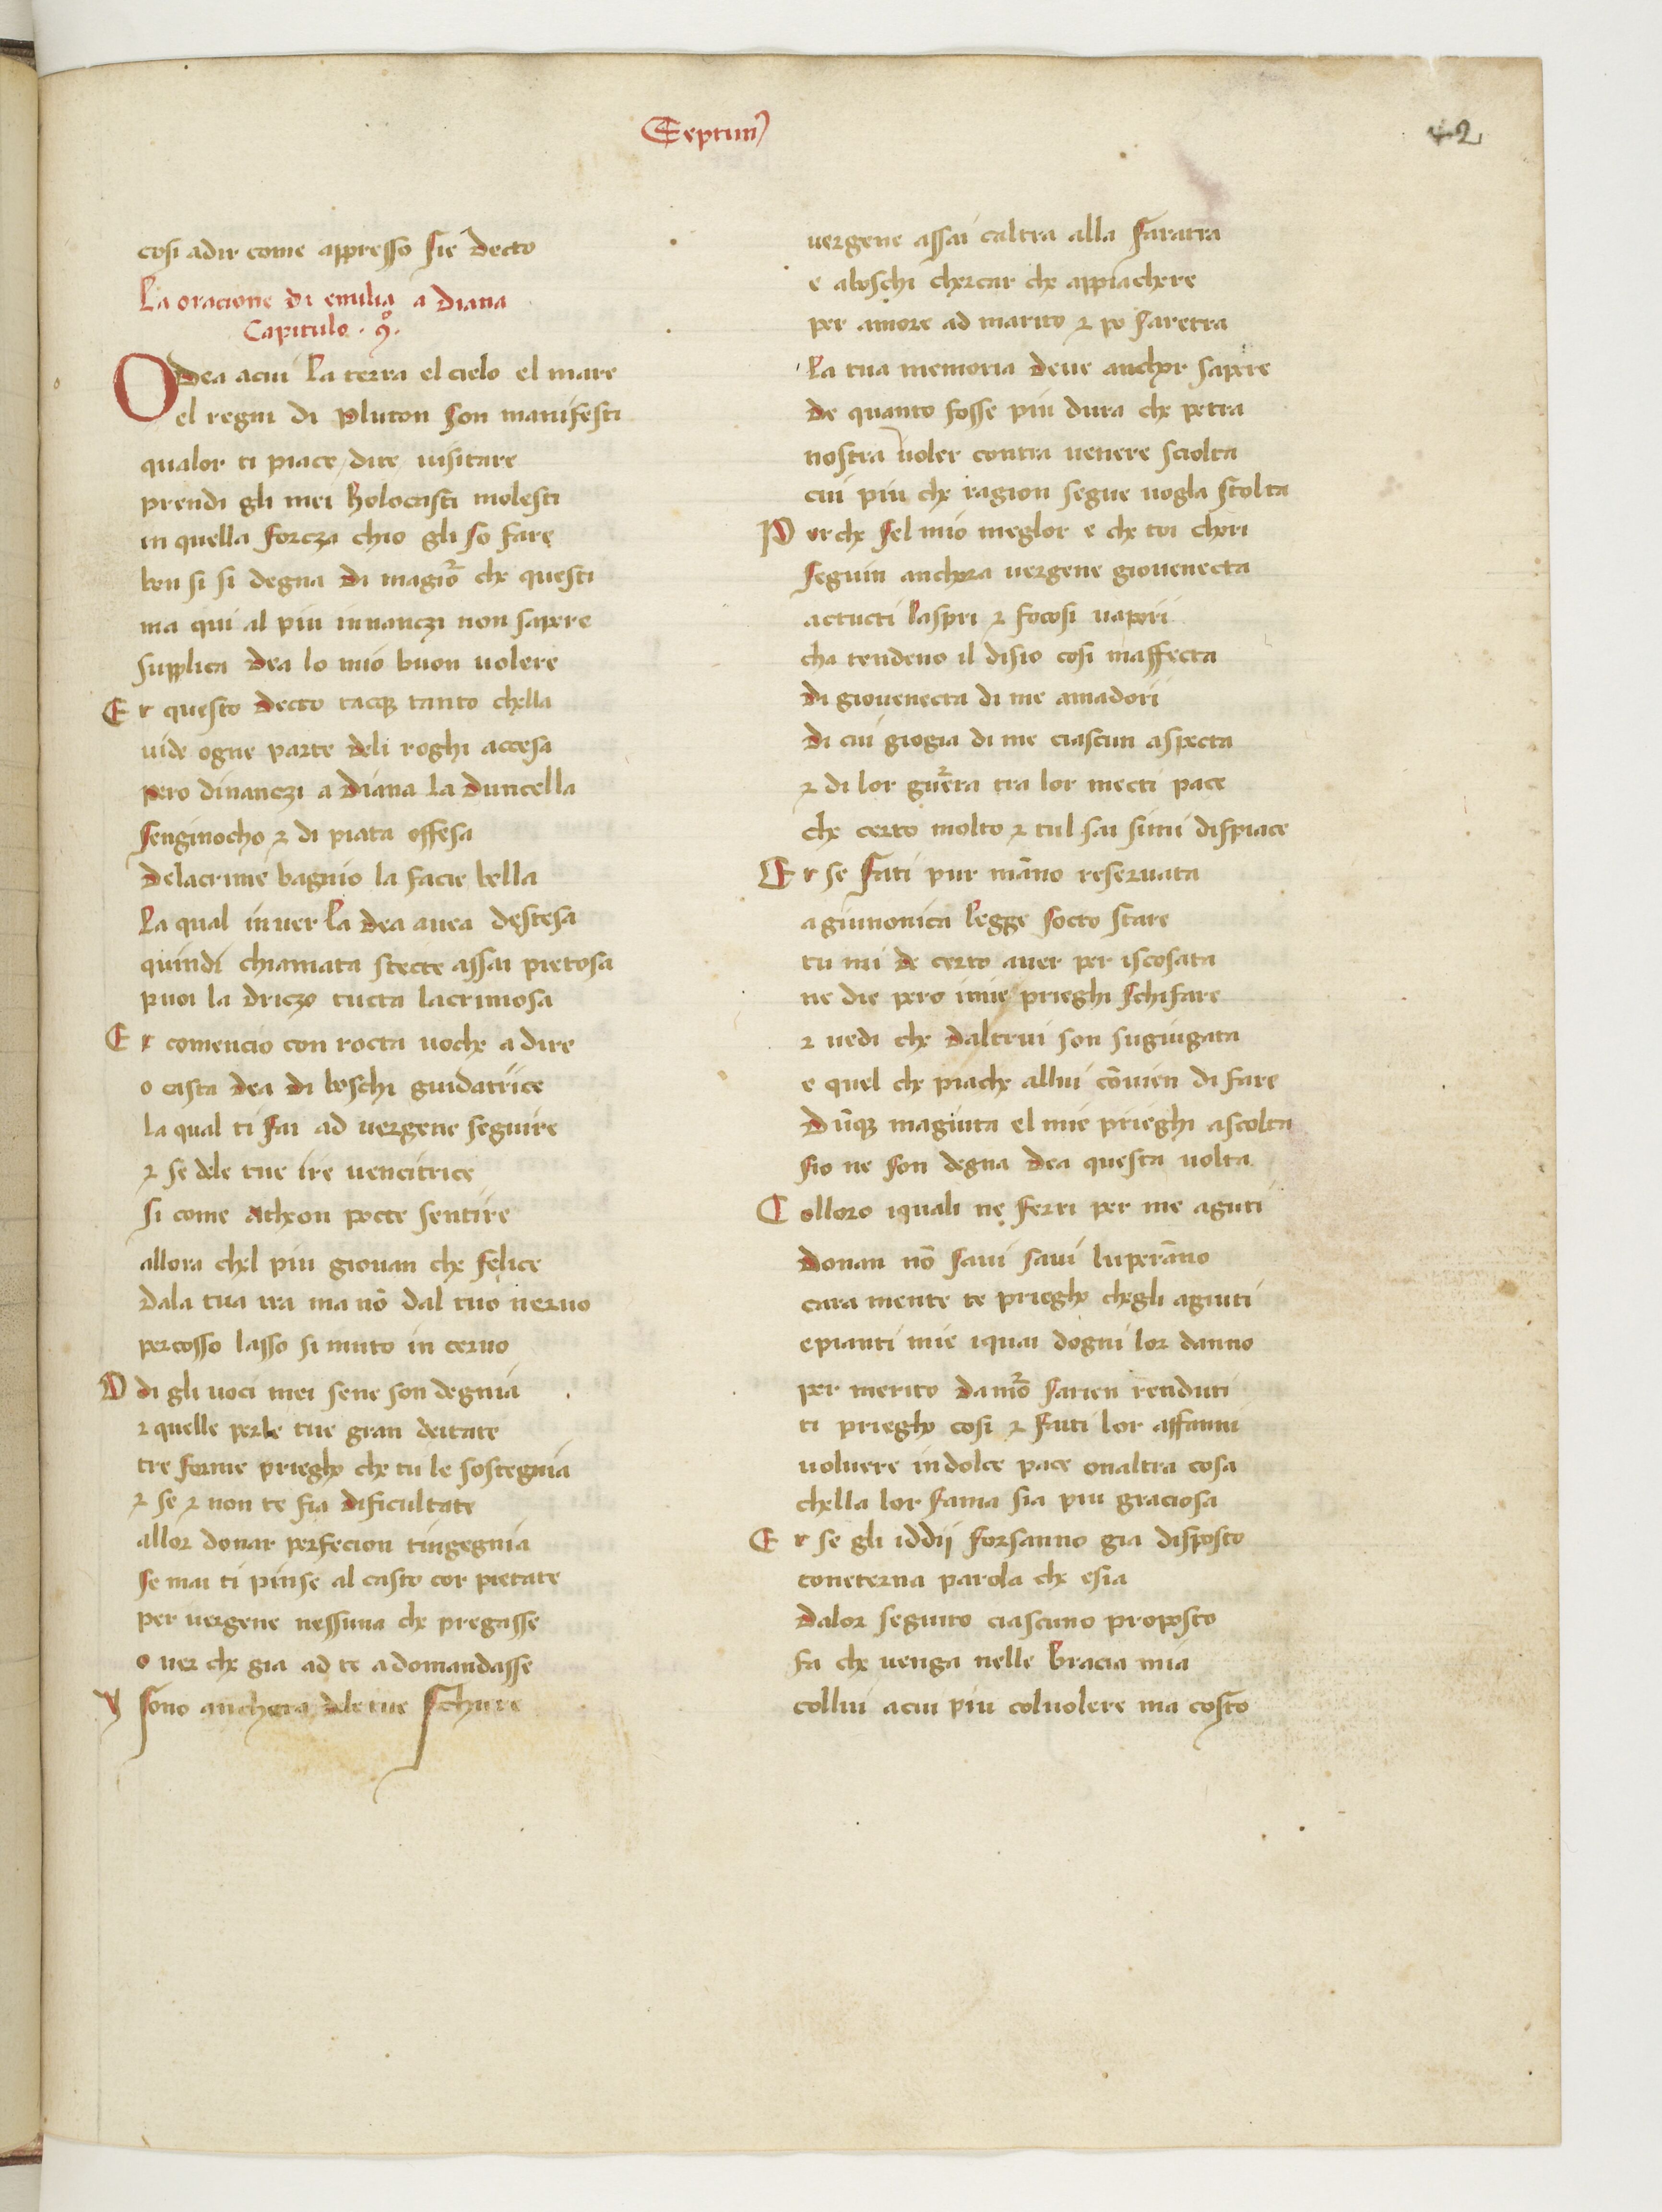 Septimꝰ
42
cosi adir come appresso sie decto
La oracione di emilia a Diana
Capitulo . 9º.
O Dea acui la terra el cielo el mare
el regni di pluton son manifesti
qualor ti piace dite uisitare
prendi gli mei holocasti molesti
in quella forcza chio gli so fare
ben si si degna di magior che questi
ma qui al piu innanczi non sapere
supplica dea lo mio buon uolere
Et questo decto tacque tanto chella
uide ogne parte deli roghi accesa
pero dinanczi a diana la duncella
senginocho & di piata offesa
delacrime bagnio la facie bella
la qual inuer la dea auea destesa
quindi chiamata stecte assai pietosa
puoi la driczo tucta lacrimosa
Et comencio con rocta uoche a dire
o casta dea di boschi guidatrice
la qual ti fai ad uergene seguire
& se dele tue ire uencitrice
si come atheon pocte sentire
allora chel piu giouan che felice
dala tua ira ma nō dal tuo neruo
percosso lasso si muto in ceruo
Odi gli uoci mei sene son degnia
& quelle perle tue gran deitate
tre forme priegho che tu le sostegnia
& se & non te fia dificultate
allor donar perfecion tingegnia
se mai ti pinse al casto cor pietate
per uergene nessuna che pregasse
o uer che gia ad te adomandasse
Y sono anchora dele tue schure
uergene assai caltra alla faratra
e aboschi chercar che appiachere
per amore ad marito & po faretra
la tua memoria deue anchor sapere
de quanto fosse piu dura che petra
nostra uoler contra uenere sciolta
cui piu che ragion segue uogla stolta
Perche sel mio meglor e che toi chori
seguin anchora uergene giouenecta
actucti laspri & focosi uapori
cha tendeuo il disio cosi maffecta
di giouenecta di me amadori
di cui giogia di me ciascun aspecta
& di lor guerra tra lor mecti pace
che certo molto & tul sai simi dispiace
Et se fati pur māno reseruata
agiunonica legge socto stare
tu mi de certo auer per iscosata
ne die pero imie prieghi schifare
& uedi che daltrui son sugiugata
e quel che piache allui cōuien di fare
dūque magiuta el mie prieghi ascolta
sio ne son degna dea questa uolta
Colloro iquali ne ferri per me aguti
donan nō saui saui luperāno
cara mente te priegho chegli agiuti
epianti mie iquai dogni lor danno
per merito damor sarien renduti
ti priegho cosi & fati lor affanni
uoluere indolce pace onaltra cosa
chella lor fama sia piu graciosa
Et se gli iddij forsanno gia disposto
coneterna parola che esia
dalor seguito ciascuno proposto
fa che uenga nelle bracia mia
collui acui piu coluolere ma costo